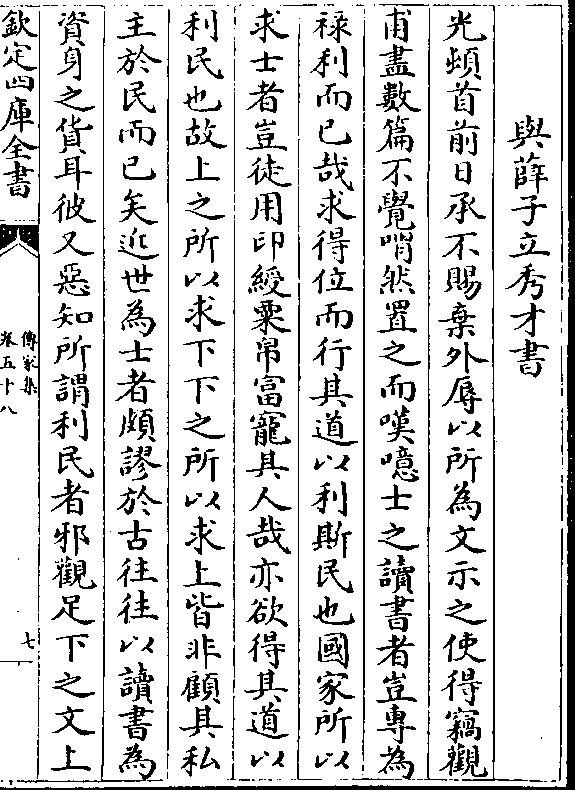 與薛子立秀才書
光頓首前日承不賜棄外辱以所為文示之使得竊觀
甫盡數篇不覺喟然置之而嘆噫士之讀書者豈專為
祿利而已哉求得位而行其道以利斯民也國家所以
求士者豈徒用印綬粟帛富寵其人哉亦欲得其道以
利民也故上之所以求下下之所以求上皆非顧其私
主於民而已矣近世為士者頗謬於古往往以讀書為
資身之貨耳彼又惡知所謂利民者邪觀足下之文上
欽定四庫全書
傳家集
卷五十八
七